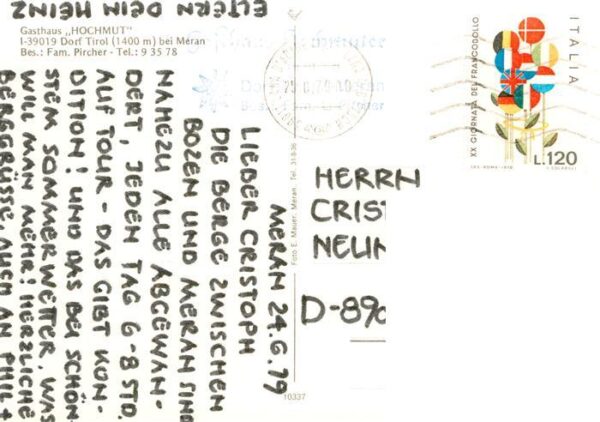 Gasthaus „HOCHMUT"
I-39019 Dorf Tirol (1400 m) bei Meran
Bes.: Fam. Pircher - Tel.: 9 35 78
MERAN 24.6.79
LIEBER CRISTOPH
DIE BERGE ZWISCHEN
BOZEN UND MERAN SIND
NAHEZU ALLE ABGEWAN-
DERT, JEDEN TAG 6-8 STD.
AUF TOUR - DAS GIBT KON-
DITION! UND DAS BEI SCHÖN-
STEM SOMMERWETTER, WAS
WILL MAN MEHR! HERZLICHE
BERGGRÜSSE, AUCH AN PHIL +
ELTERN DEIN HEINZ
Foto E. Mauer, Meran.
10337
ITALIA
XX GIORNATA DEL FRANCOBOLLO
L.120
HERRN
D-890